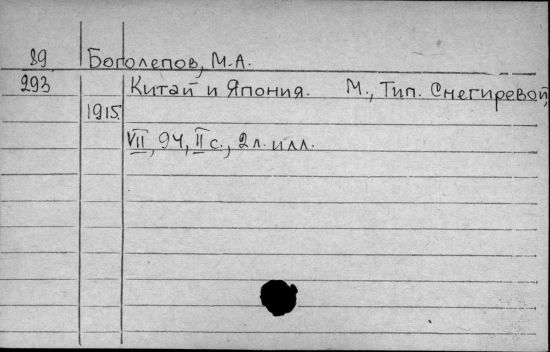 89 Боголепов, М.А.
293 Китай и Япония. М., Тип. Снегиревой,
1915
VII, 94, II с., 2 л. илл.